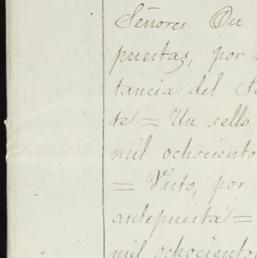 Señores Du
puestas, por
tancia del Se
te = Un sello
mil ochociento
= Visto, por
antepuesta =
mil ochociento